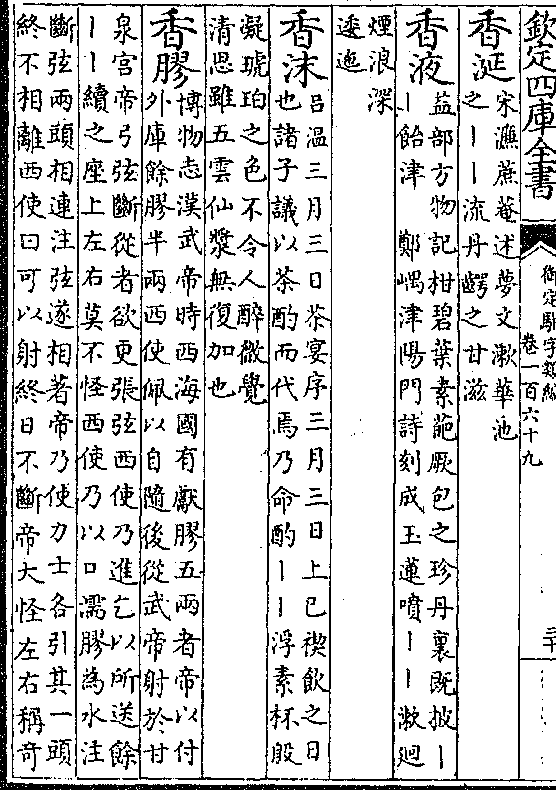 欽定四庫全書
御定駢字類編
卷一百六十九
三十
香涎
宋濂蔗菴述夢文漱華池
之丨丨流丹齶之甘滋
香液
益部方物記柑碧葉素葩厥包之珍丹裏既披丨
丨飴津　鄭嵎津陽門詩刻成玉蓮噴丨丨漱廻
煙浪深
逶迤
香沫
吕温三月三日茶宴序三月三日上已禊飲之日
也諸子議以茶酌而代焉乃命酌丨丨浮素杯殷
凝琥珀之色不令人醉微覺
清思雖五雲仙漿無復加也
香膠
博物志漢武帝時西海國有獻膠五兩者帝以付
外庫餘膠半兩西使佩以自隨後從武帝射於甘
泉宫帝弓弦斷從者欲更張弦西使乃進乞以所送餘
丨丨續之座上左右莫不怪西使乃以口濡膠為水注
斷弦兩頭相連注弦遂相著帝乃使力士各引其一頭
終不相離西使曰可以射終日不斷帝大怪左右稱竒